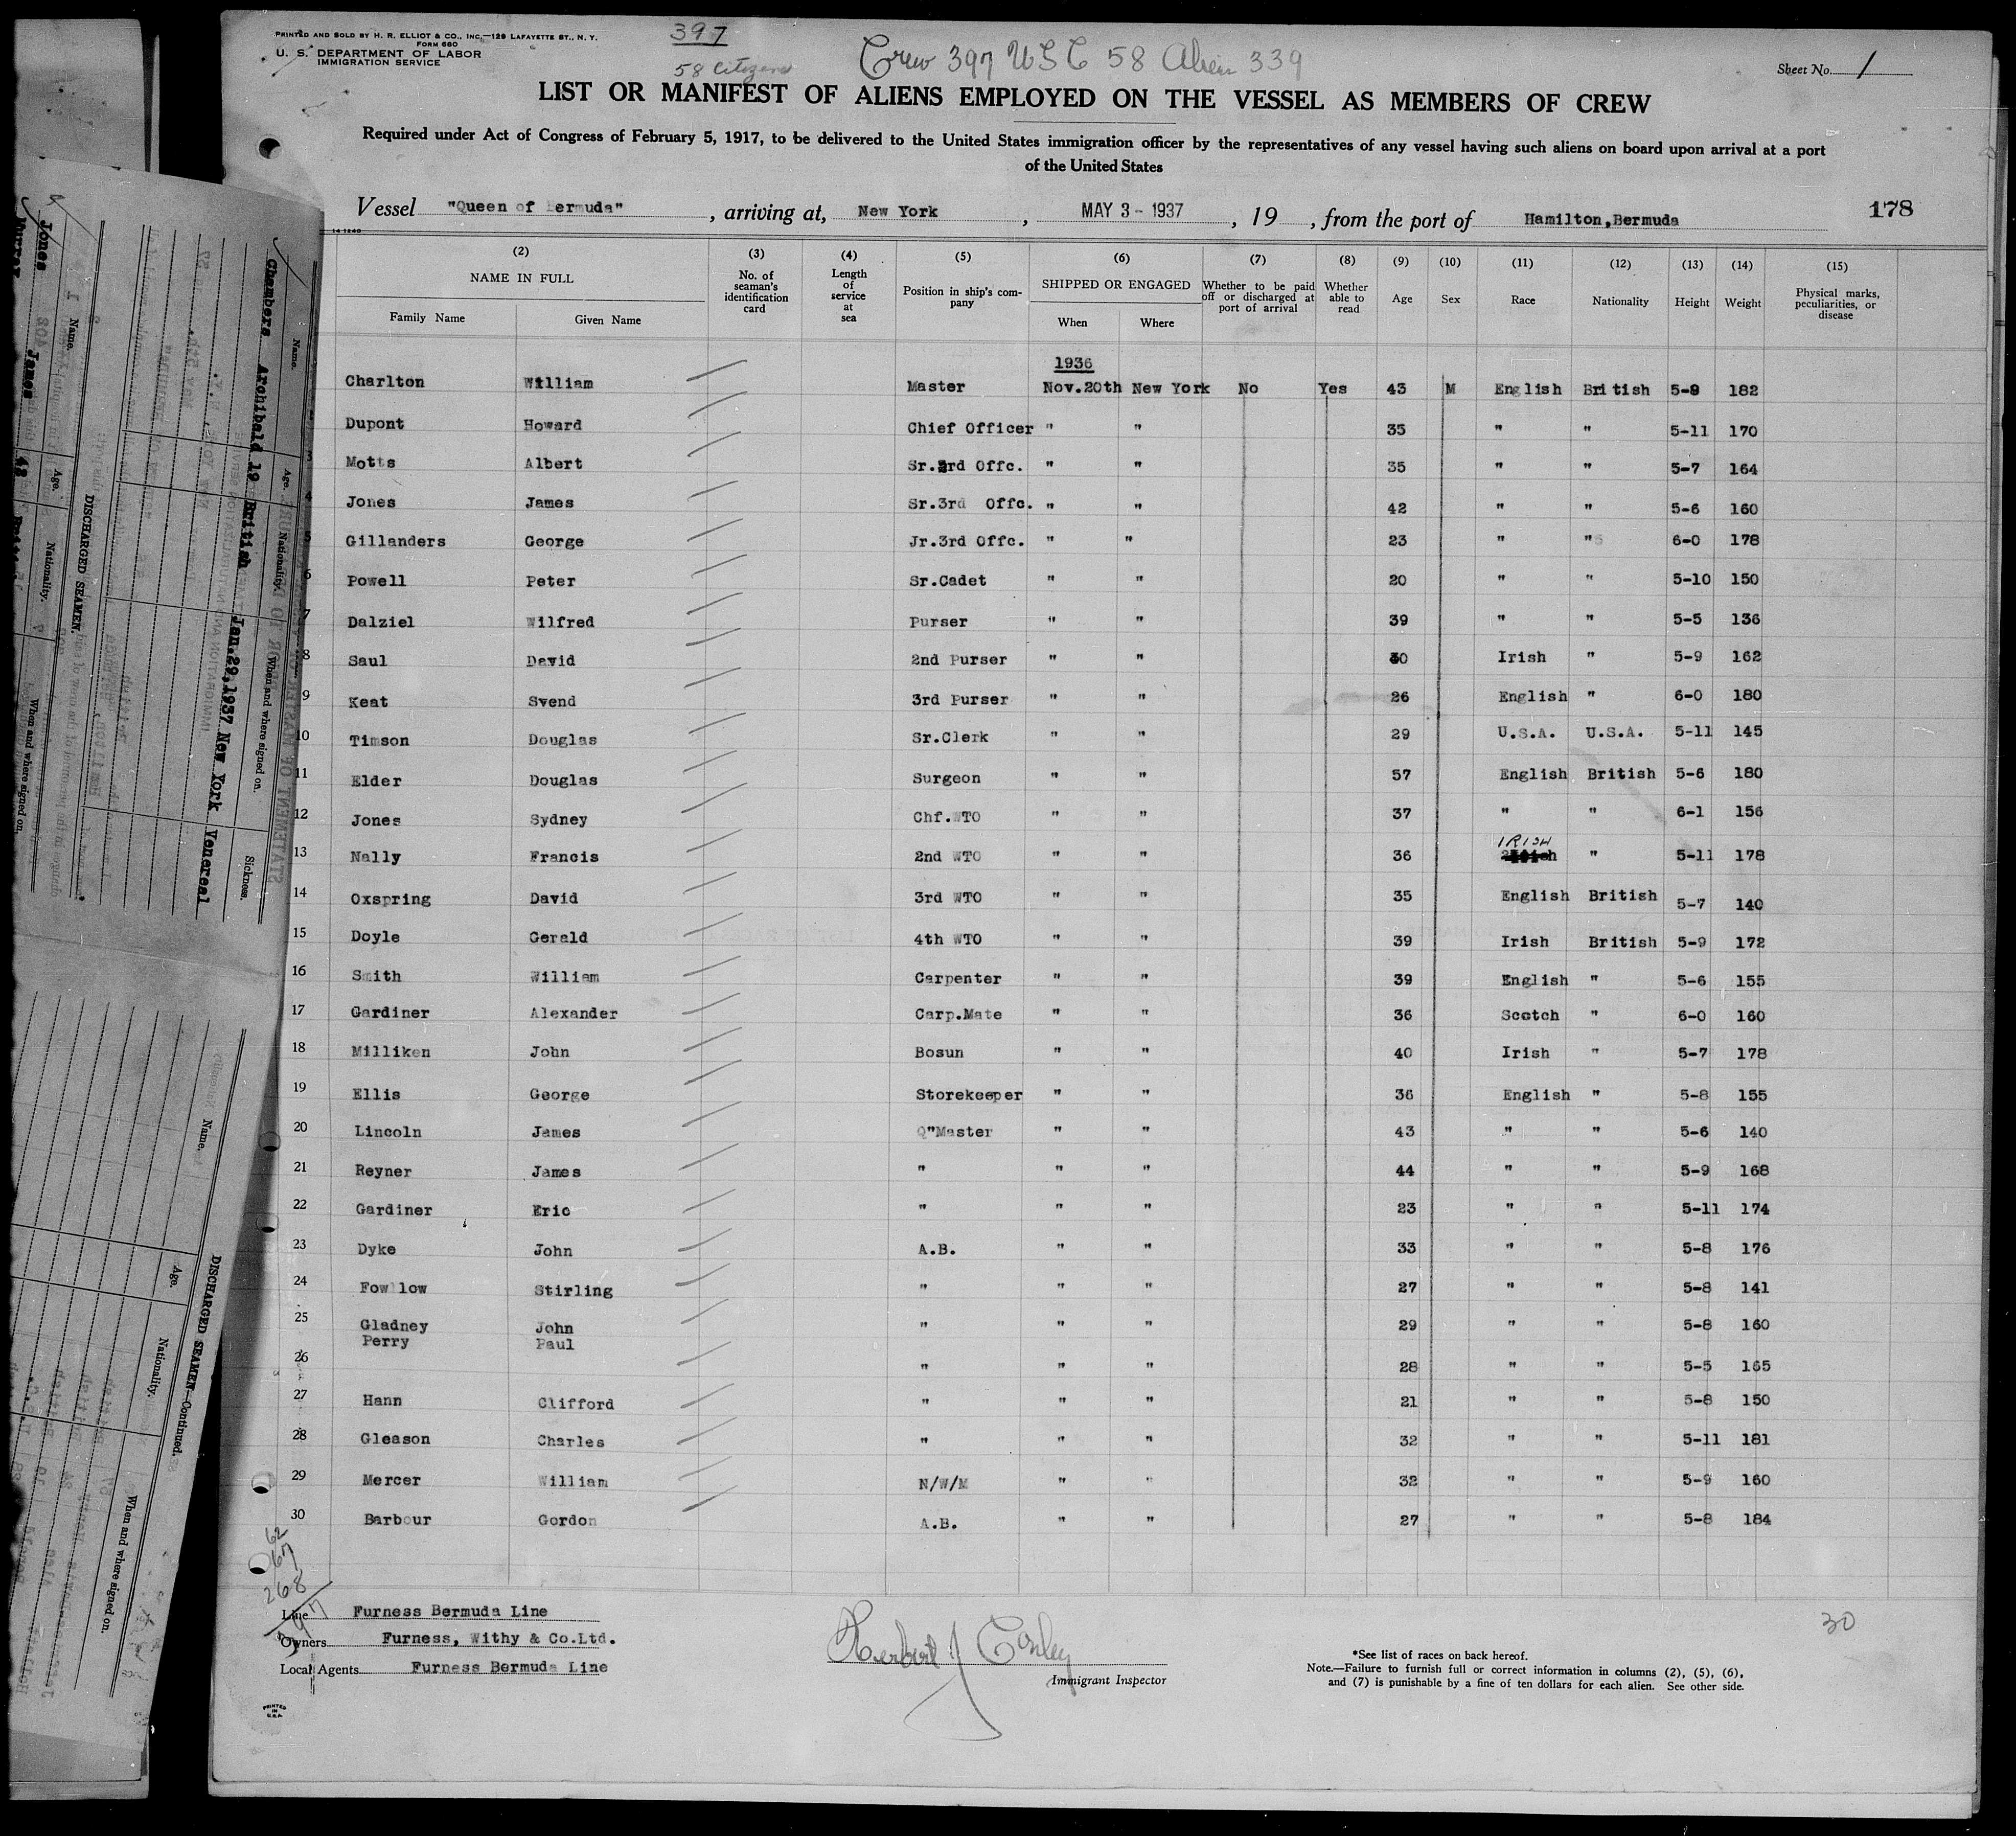 PRINTED AND SOLD BY H. R. ELLIOT & CO., INC.—129 LAFAYETTE ST., N. Y.
FORM 680
U. S. DEPARTMENT OF LABOR
IMMIGRATION SERVICE
397
58 Citizens
Crew 397 USC 58 Alien 339
Sheet No. 1
LIST OR MANIFEST OF ALIENS EMPLOYED ON THE VESSEL AS MEMBERS OF CREW
Required under Act of Congress of February 5, 1917, to be delivered to the United States immigration officer by the representatives of any vessel having such aliens on board upon arrival at a port
of the United States
Vessel "Queen of Bermuda", arriving at, New York, MAY 3 - 1937, 19 , from the port of Hamilton,Bermuda 178
(2) (3) (4) (5) (6) (7) (8) (9) (10) (11) (12) (13) (14) (15)
NAME IN FULL
Family Name Given Name
No. of seaman's identification card
Length of service at sea
Position in ship's company
SHIPPED OR ENGAGED
When Where
Whether to be paid off or discharged at port of arrival
Whether able to read
Age Sex Race Nationality Height Weight
Physical marks, peculiarities, or disease
1936
Charlton William Master Nov.20th New York No Yes 43 M English British 5-8 182
Dupont Howard Chief Officer " " 35 " " 5-11 170
3 Motts Albert Sr.2rd Offc. " " 35 " " 5-7 164
4 Jones James Sr.3rd Offc. " " 42 " " 5-6 160
5 Gillanders George Jr.3rd Offc. " " 23 " " 6-0 178
6 Powell Peter Sr.Cadet " " 20 " " 5-10 150
7 Dalziel Wilfred Purser " " 39 " " 5-5 136
8 Saul David 2nd Purser " " 30 Irish " 5-9 162
9 Keat Svend 3rd Purser " " 26 English " 6-0 180
10 Timson Douglas Sr.Clerk " " 29 U.S.A. U.S.A. 5-11 145
11 Elder Douglas Surgeon " " 57 English British 5-6 180
12 Jones Sydney Chf.WTO " " 37 " " 6-1 156
13 Nally Francis 2nd WTO " " 36 IRISH " 5-11 178
14 Oxspring David 3rd WTO " " 35 English British 5-7 140
15 Doyle Gerald 4th WTO " " 39 Irish British 5-9 172
16 Smith William Carpenter " " 39 English " 5-6 155
17 Gardiner Alexander Carp.Mate " " 36 Scotch " 6-0 160
18 Milliken John Bosun " " 40 Irish " 5-7 178
19 Ellis George Storekeeper " " 36 English " 5-8 155
20 Lincoln James Q"Master " " 43 " " 5-6 140
21 Reyner James " " " 44 " " 5-9 168
22 Gardiner Eric " " " 23 " " 5-11 174
23 Dyke John A.B. " " 33 " " 5-8 176
24 Fowllow Stirling " " " 27 " " 5-8 141
25 Gladney John " " " 29 " " 5-8 160
26 Perry Paul " " " 28 " " 5-5 165
27 Hann Clifford " " " 21 " " 5-8 150
28 Gleason Charles " " " 32 " " 5-11 181
29 Mercer William N/W/M " " 32 " " 5-9 160
30 Barbour Gordon A.B. " " 27 " " 5-8 184
62
67
268
397
Line Furness Bermuda Line
Owners Furness, Withy & Co.Ltd.
Local Agents Furness Bermuda Line
Herbert J Conley
Immigrant Inspector
30
*See list of races on back hereof.
Note.—Failure to furnish full or correct information in columns (2), (5), (6),
and (7) is punishable by a fine of ten dollars for each alien. See other side.
PRINTED IN U.S.A.
DISCHARGED SEAMEN.
Name. Age. Nationality. When and where signed on.
Jones James 42
Name. Age. Nationality. When and where signed on. Sickness.
Chambers Archibald 19 British Jan.29,1937 New York Venereal
DISCHARGED SEAMEN—Continued.
Name. Age. Nationality. When and where signed on.